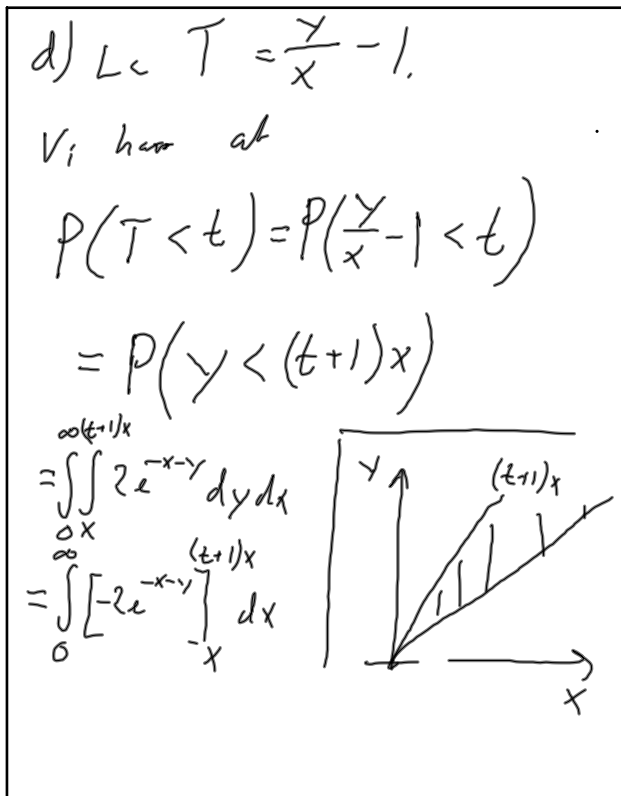 d) La T = y/x - 1.
Vi har at
P(T < t) = P(y/x - 1 < t)
= P(y < (t+1)x)
= ∫_0^∞ ∫_x^{(t+1)x} 2e^{-x-y} dy dx
= ∫_0^∞ [-2e^{-x-y}]_x^{(t+1)x} dx
y
(t+1)x
x